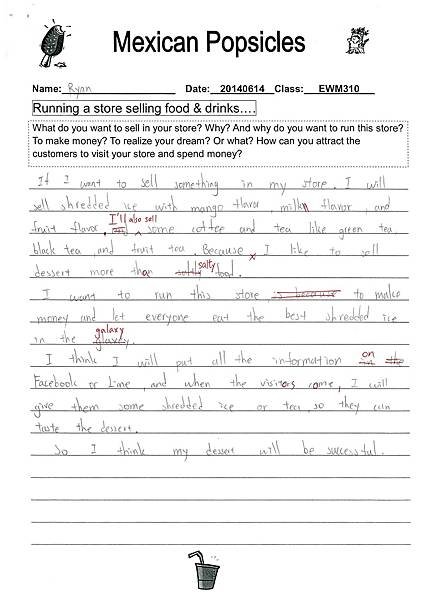 Mexican Popsicles
Name: Ryan Date: 20140614 Class: EWM310
Running a store selling food & drinks....
What do you want to sell in your store? Why? And why do you want to run this store?
To make money? To realize your dream? Or what? How can you attract the
customers to visit your store and spend money?
If I want to sell something in my store. I will
sell shredded ice with mango flavor, milk flavor, and
I'll also sell
fruit flavor, some coffee and tea like green tea,
black tea, and fruit tea. Because I like to sell
salty
dessert more than salty food.
I want to run this store is because to make
money and let everyone eat the best shredded ice
galaxy
in the
I think I will put all the information on in the
Facebook or Line, and when the visitors come, I will
give them some shredded ice or tea, so they can
taste the dessert.
So I think my dessert will be successful.